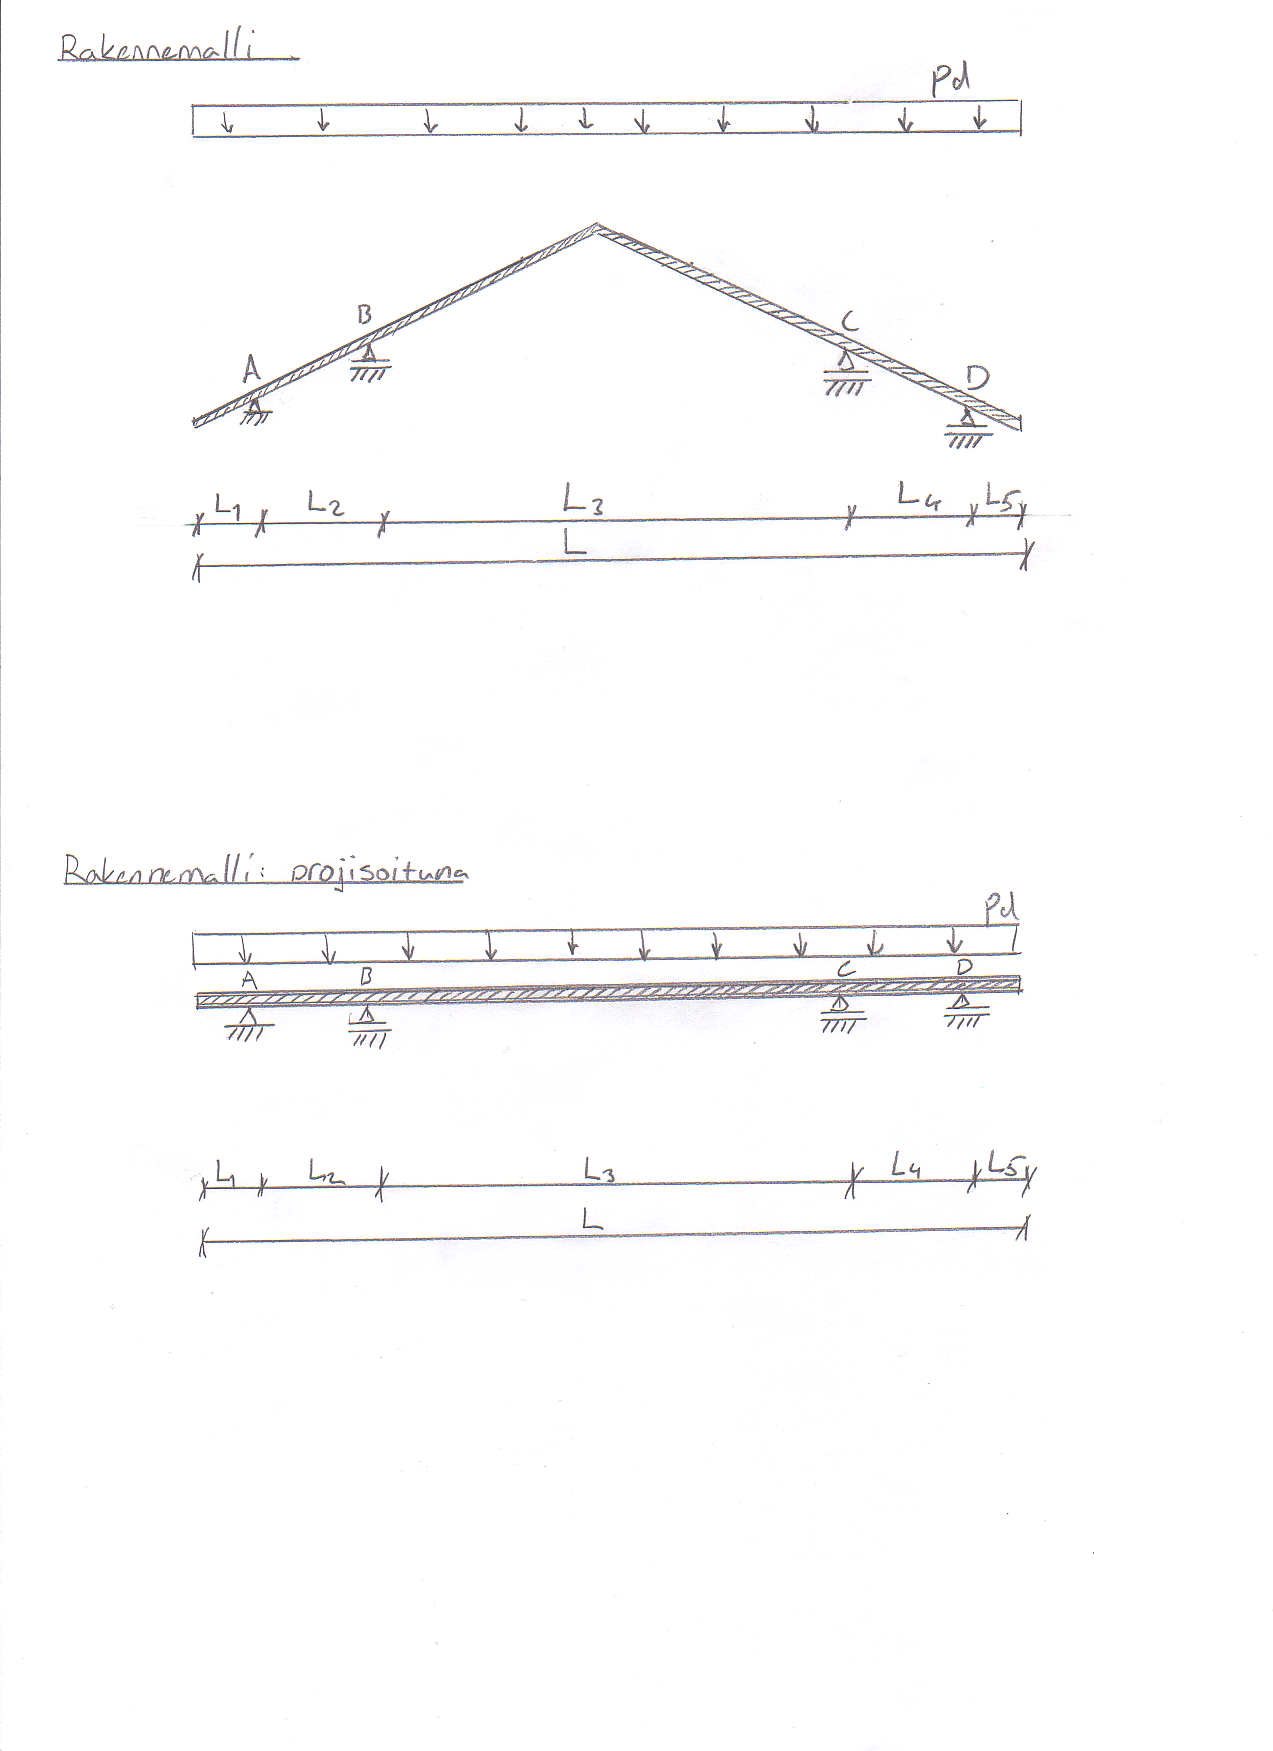 Rakennemalli
Pd
B
C
A
D
L1 L2 L3 L4 L5
L
Rakennemalli: projisoituna
Pd
A B C D
L1 L2 L3 L4 L5
L